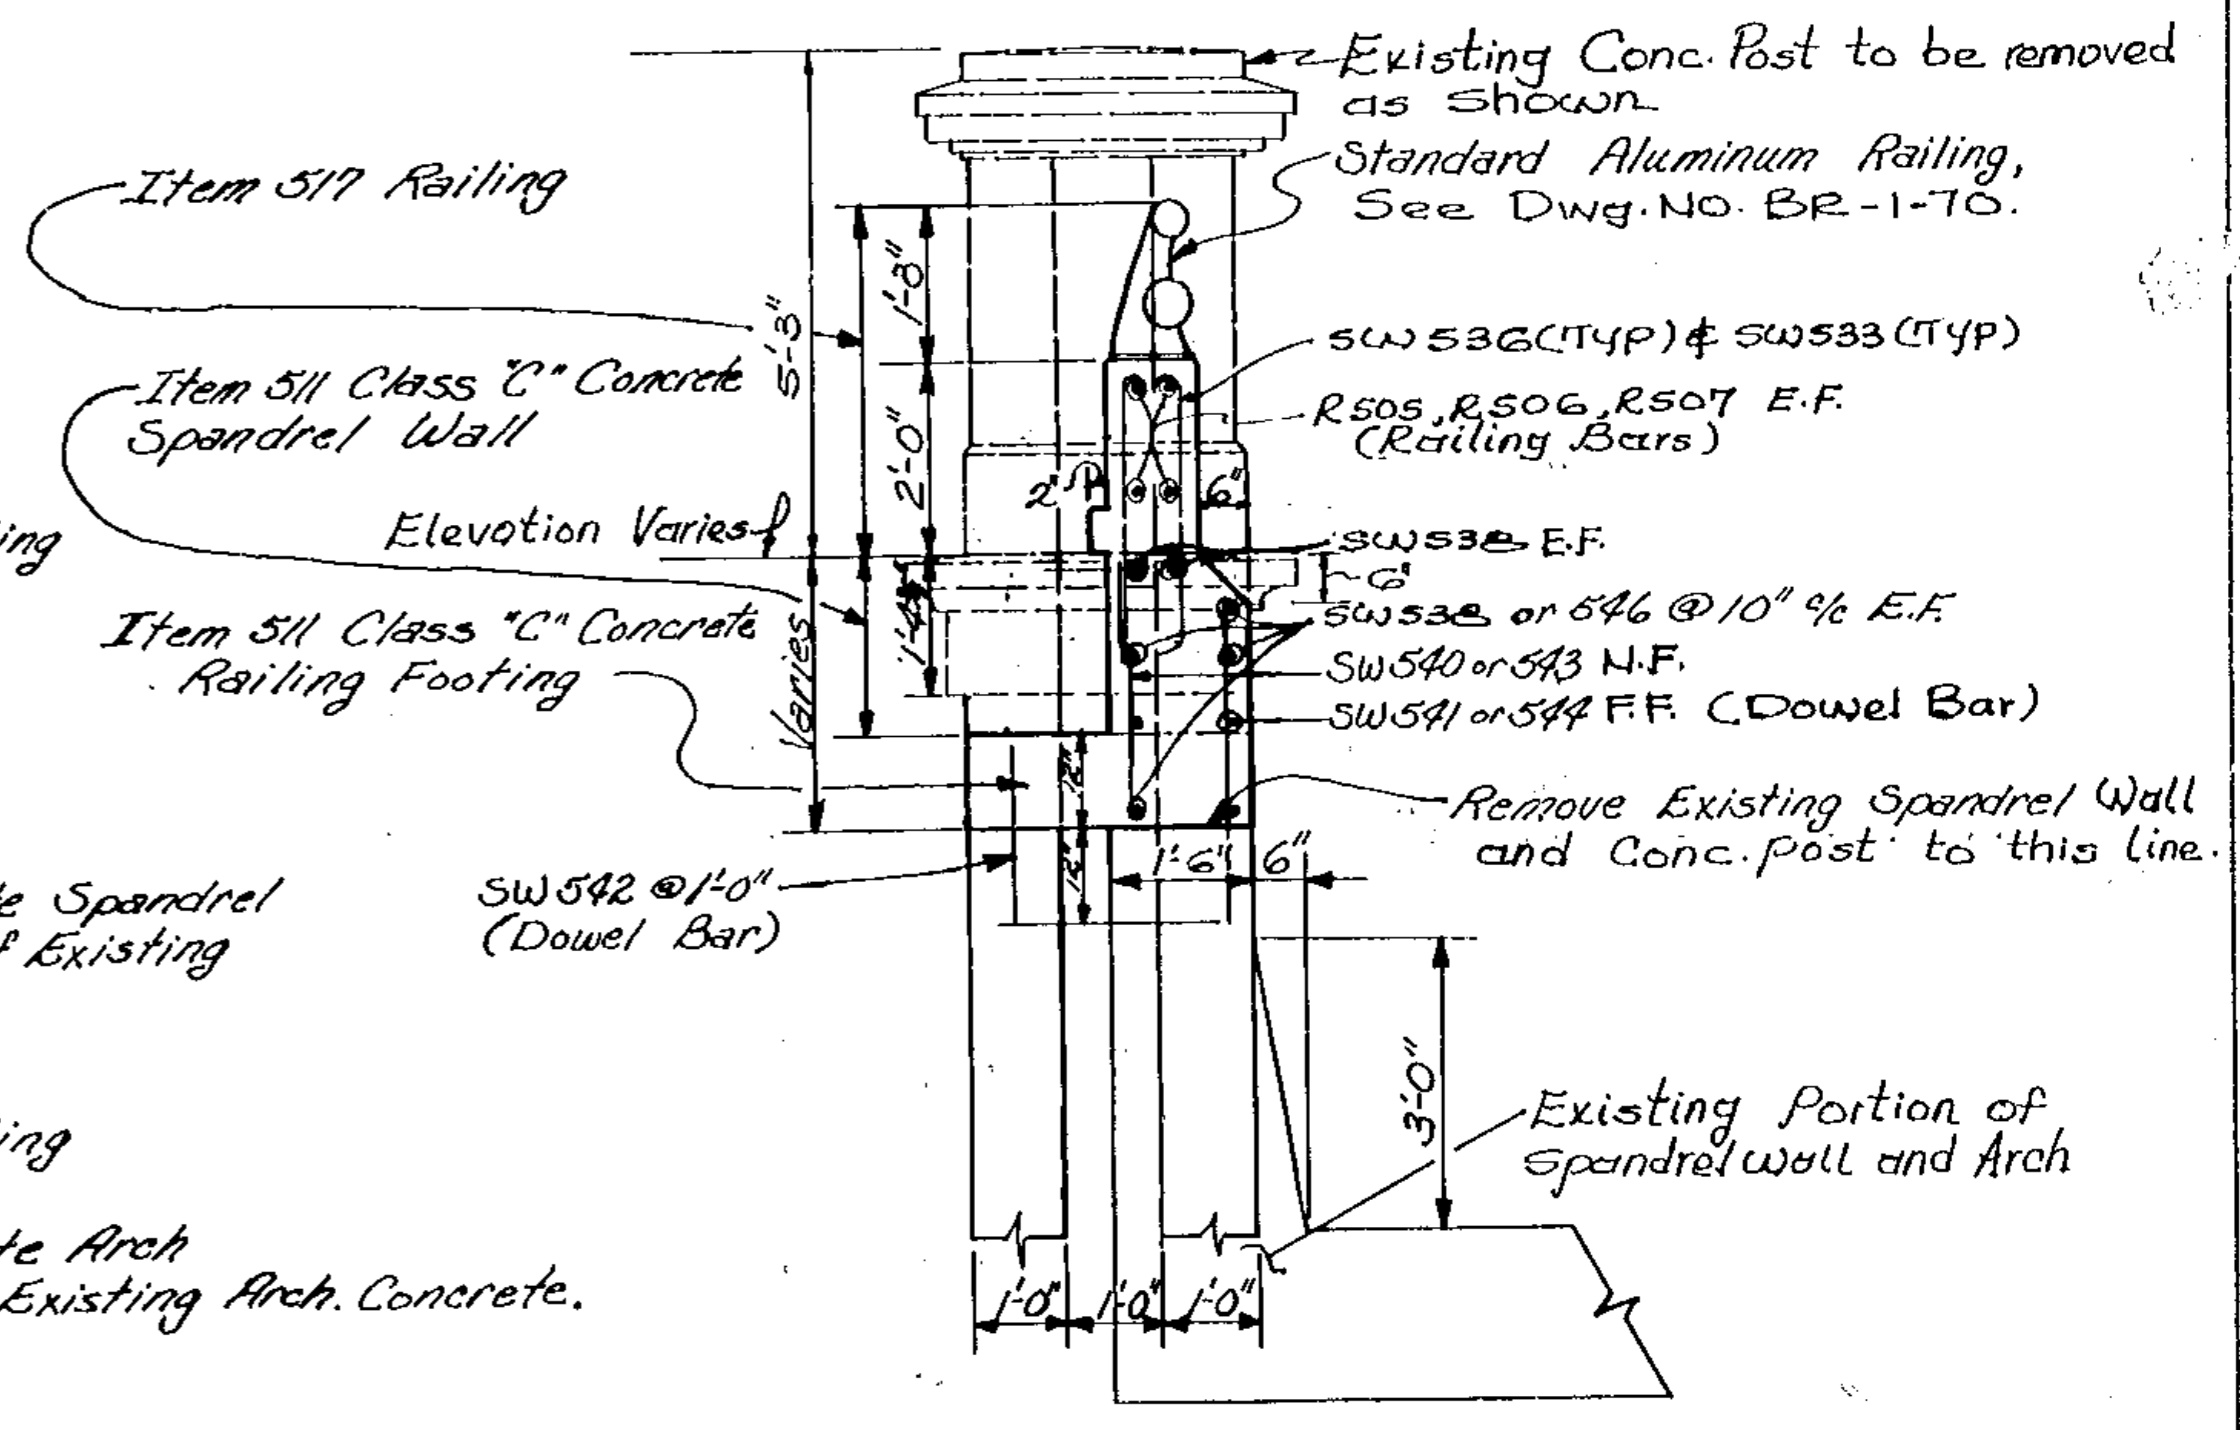 Existing Conc. Post to be removed
as Shown
Standard Aluminum Railing,
See Dwg. NO. BR-1-70.
Item 517 Railing
5'-3"
1'-3"
SW536(TYP) & SW533(TYP)
Item 511 Class "C" Concrete
Spandrel Wall
R505, R506, R507 E.F.
(Railing Bars)
2'-0"
2"
6"
ing
Elevation Varies
SW538 E.F.
6"
SW538 or 546 @ 10" c/c E.F.
Item 511 Class "C" Concrete
Railing Footing
Varies
SW540 or 543 N.F.
SW541 or 544 F.F. (Dowel Bar)
12"
Remove Existing Spandrel Wall
and Conc. post to this line.
1'-6"
6"
12"
SW542 @ 1'-0"
(Dowel Bar)
te Spandrel
f Existing
3'-0"
ing
Existing Portion of
Spandrel wall and Arch
te Arch
Existing Arch. Concrete.
1'-0"
1'-0"
1'-0"